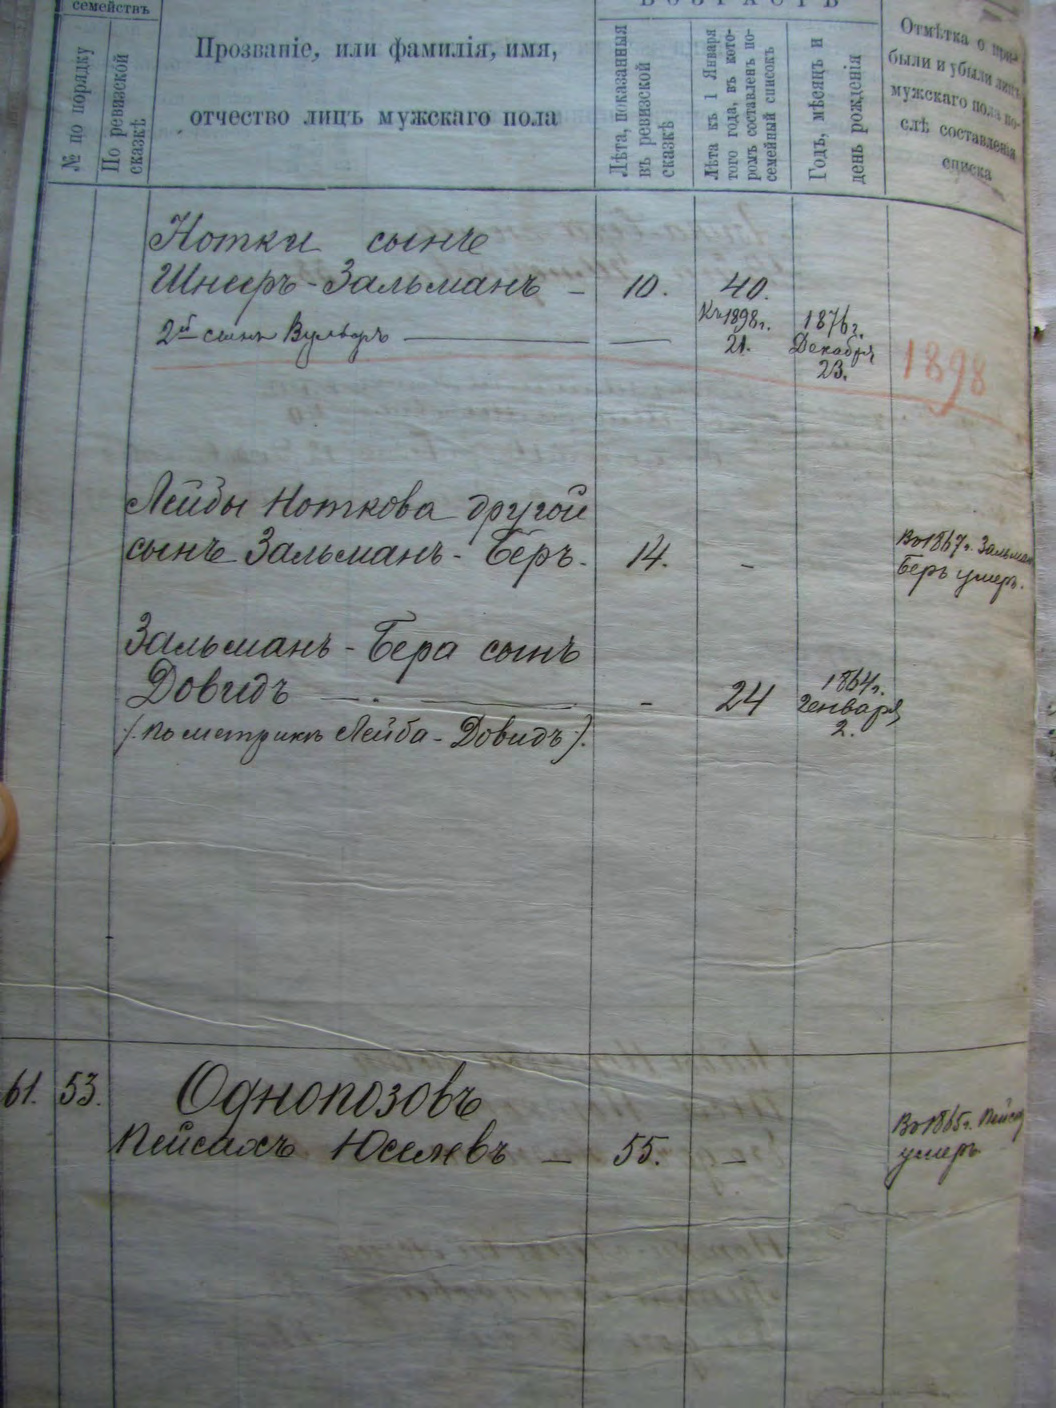 семействъ
ВОЗРАСТЪ
№ по порядку
По ревизской
сказкѣ
Прозваніе, или фамилія, имя,
отчество лицъ мужскаго пола
Лѣта, показанныя
въ ревизской
сказкѣ
Лѣта къ 1 Января
того года, въ кото-
ромъ составленъ по-
семейный списокъ
Годъ, мѣсяцъ и
день рожденія
Отмѣтка о при-
были и убыли лицъ
мужскаго пола по-
слѣ составленія
списка
Нотки сынъ
Шнееръ-Зальманъ - 10. 40.
2й сынъ Вульфъ — — Къ 1898г. 21. 1876г. Декабря 23. 1898
Лейбы Ноткова другой
сынъ Зальманъ-Беръ. 14. - Въ 1867г. Зальман
Беръ умеръ.
Зальманъ-Бера сынъ
Довидъ — - 24 1864г. Генваря 2.
(по метрикѣ Лейба-Довидъ).
61. 53. Однопозовъ
Пейсахъ Юселевъ — 55. - Въ 1865г. Пейсах
умеръ